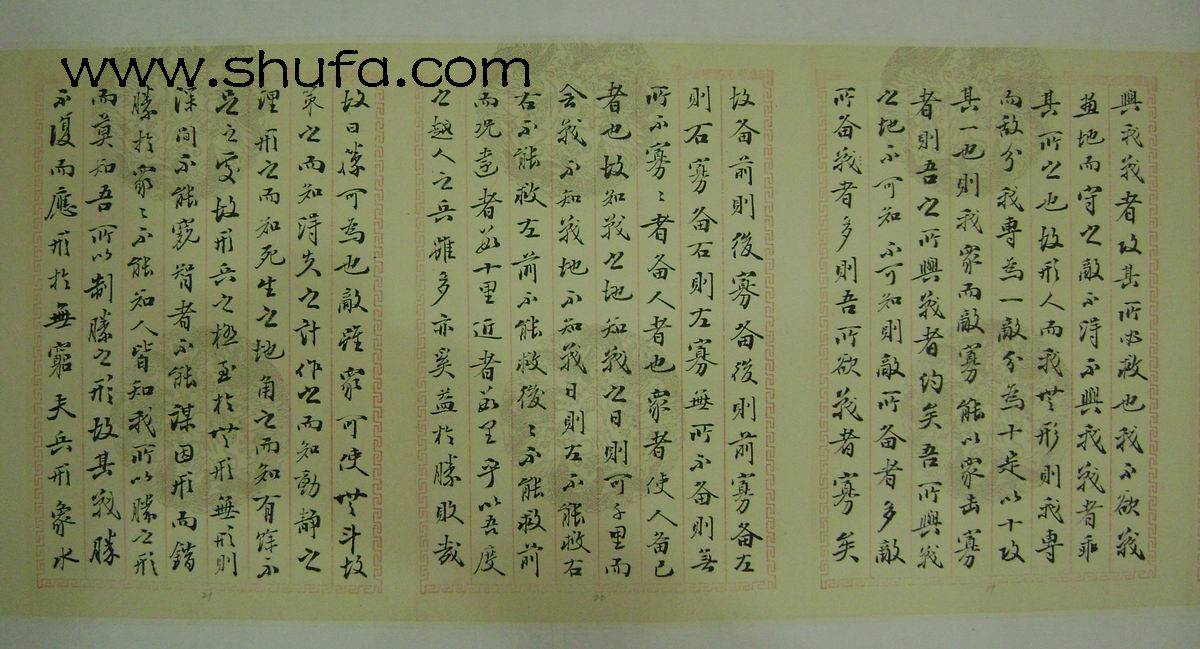 www.shufa.com
與我戰者攻其所必救也我不欲戰
畫地而守之敵不得不與我戰者乖
其所之也故形人而我無形則我專
而敵分我專為一敵分為十是以十攻
其一也則我眾而敵寡能以眾击寡
者則吾之所與戰者約矣吾所與戰
之地不可知不可知則敵所备者多敵
所备戰者多則吾所欲戰者寡矣
19
故备前則後寡备後則前寡备左
則右寡备右則左寡無所不备則無
所不寡々者备人者也眾者使人备己
者也故知戰之地知戰之日則可千里而
会戰不知戰地不知戰日則左不能救右
右不能救左前不能救後々不能救前
而况遠者數十里近者數里乎以吾度
之越人之兵雖多亦奚益於勝敗哉
20
故曰勝可為也敵雖眾可使無斗故
策之而知得失之計作之而知動靜之
理形之而知死生之地角之而知有餘不
足之處故形兵之極至於無形無形則
深間不能窺智者不能謀因形而錯
勝於眾々不能知人皆知我所以勝之形
而莫知吾所以制勝之形故其戰勝
不復而應形於無窮夫兵形象水
21